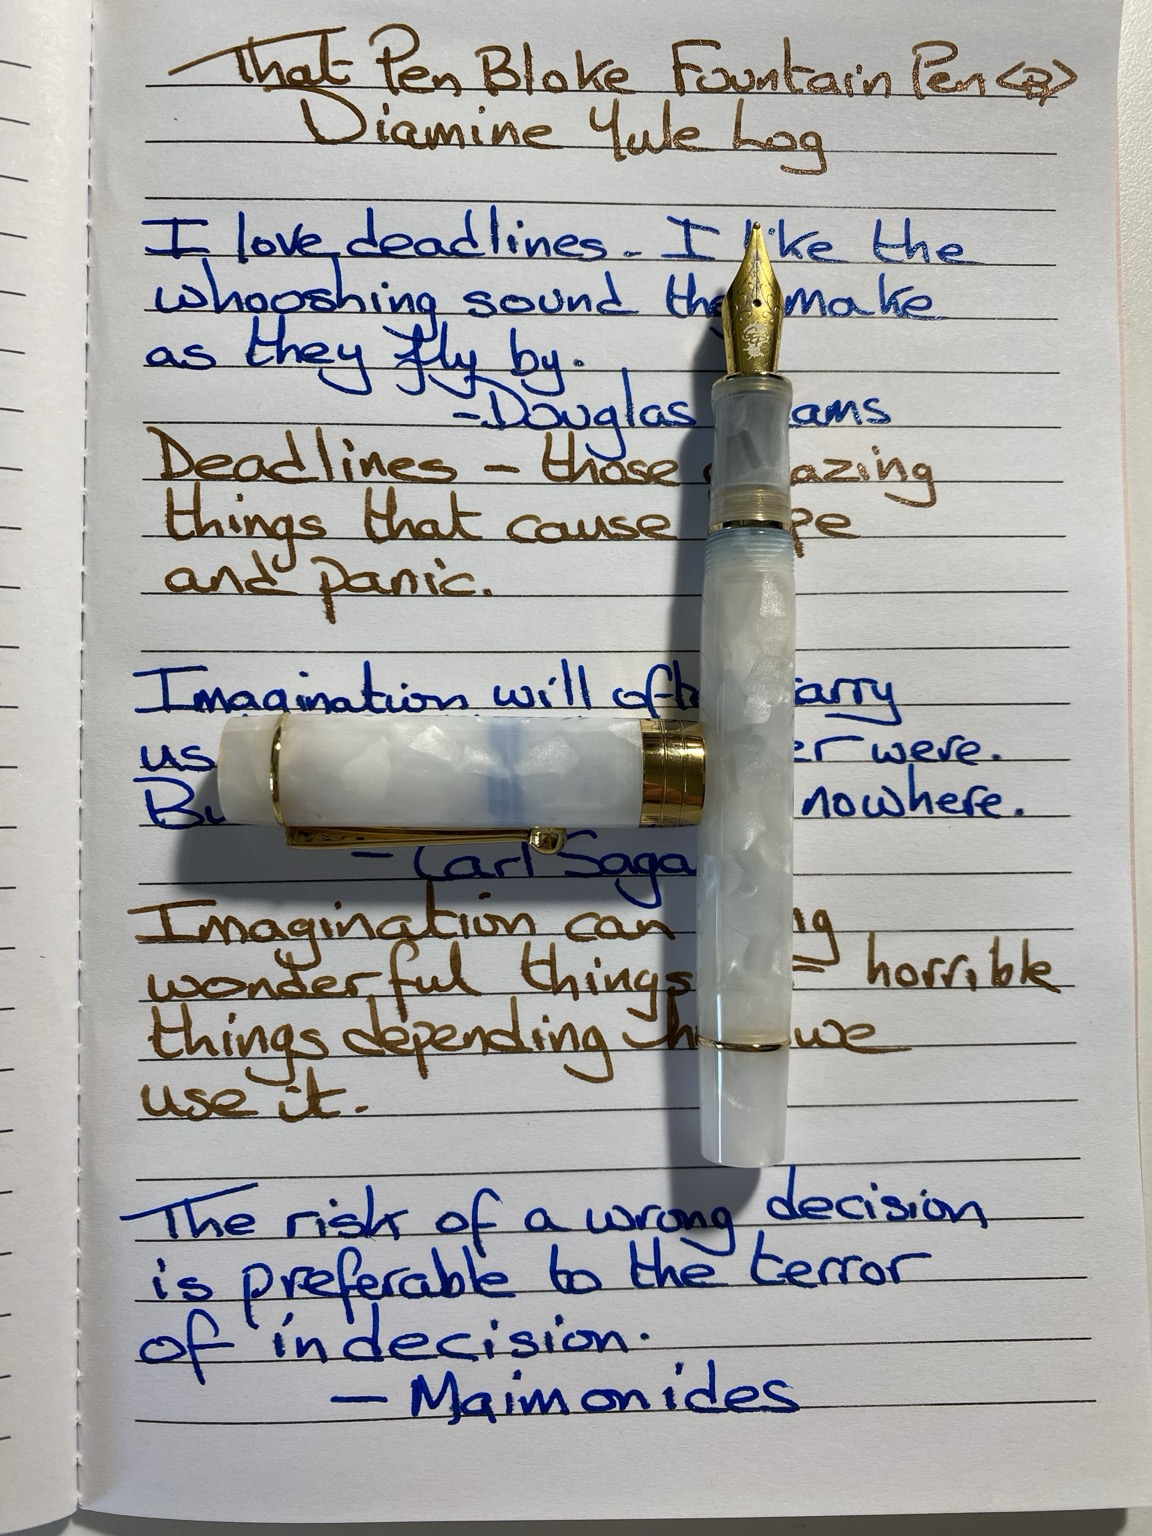 That Pen Bloke Fountain Pen <B>
Diamine Yule Log
I love deadlines - I like the
whooshing sound they make
as they fly by.
- Douglas ams
Deadlines - those azing
things that cause pe
and panic.
Imagination will oft arry
us er were.
Bu nowhere.
- Carl Saga
Imagination can ng
wonderful things horrible
things depending h we
use it.
The risk of a wrong decision
is preferable to the terror
of indecision.
- Maimonides